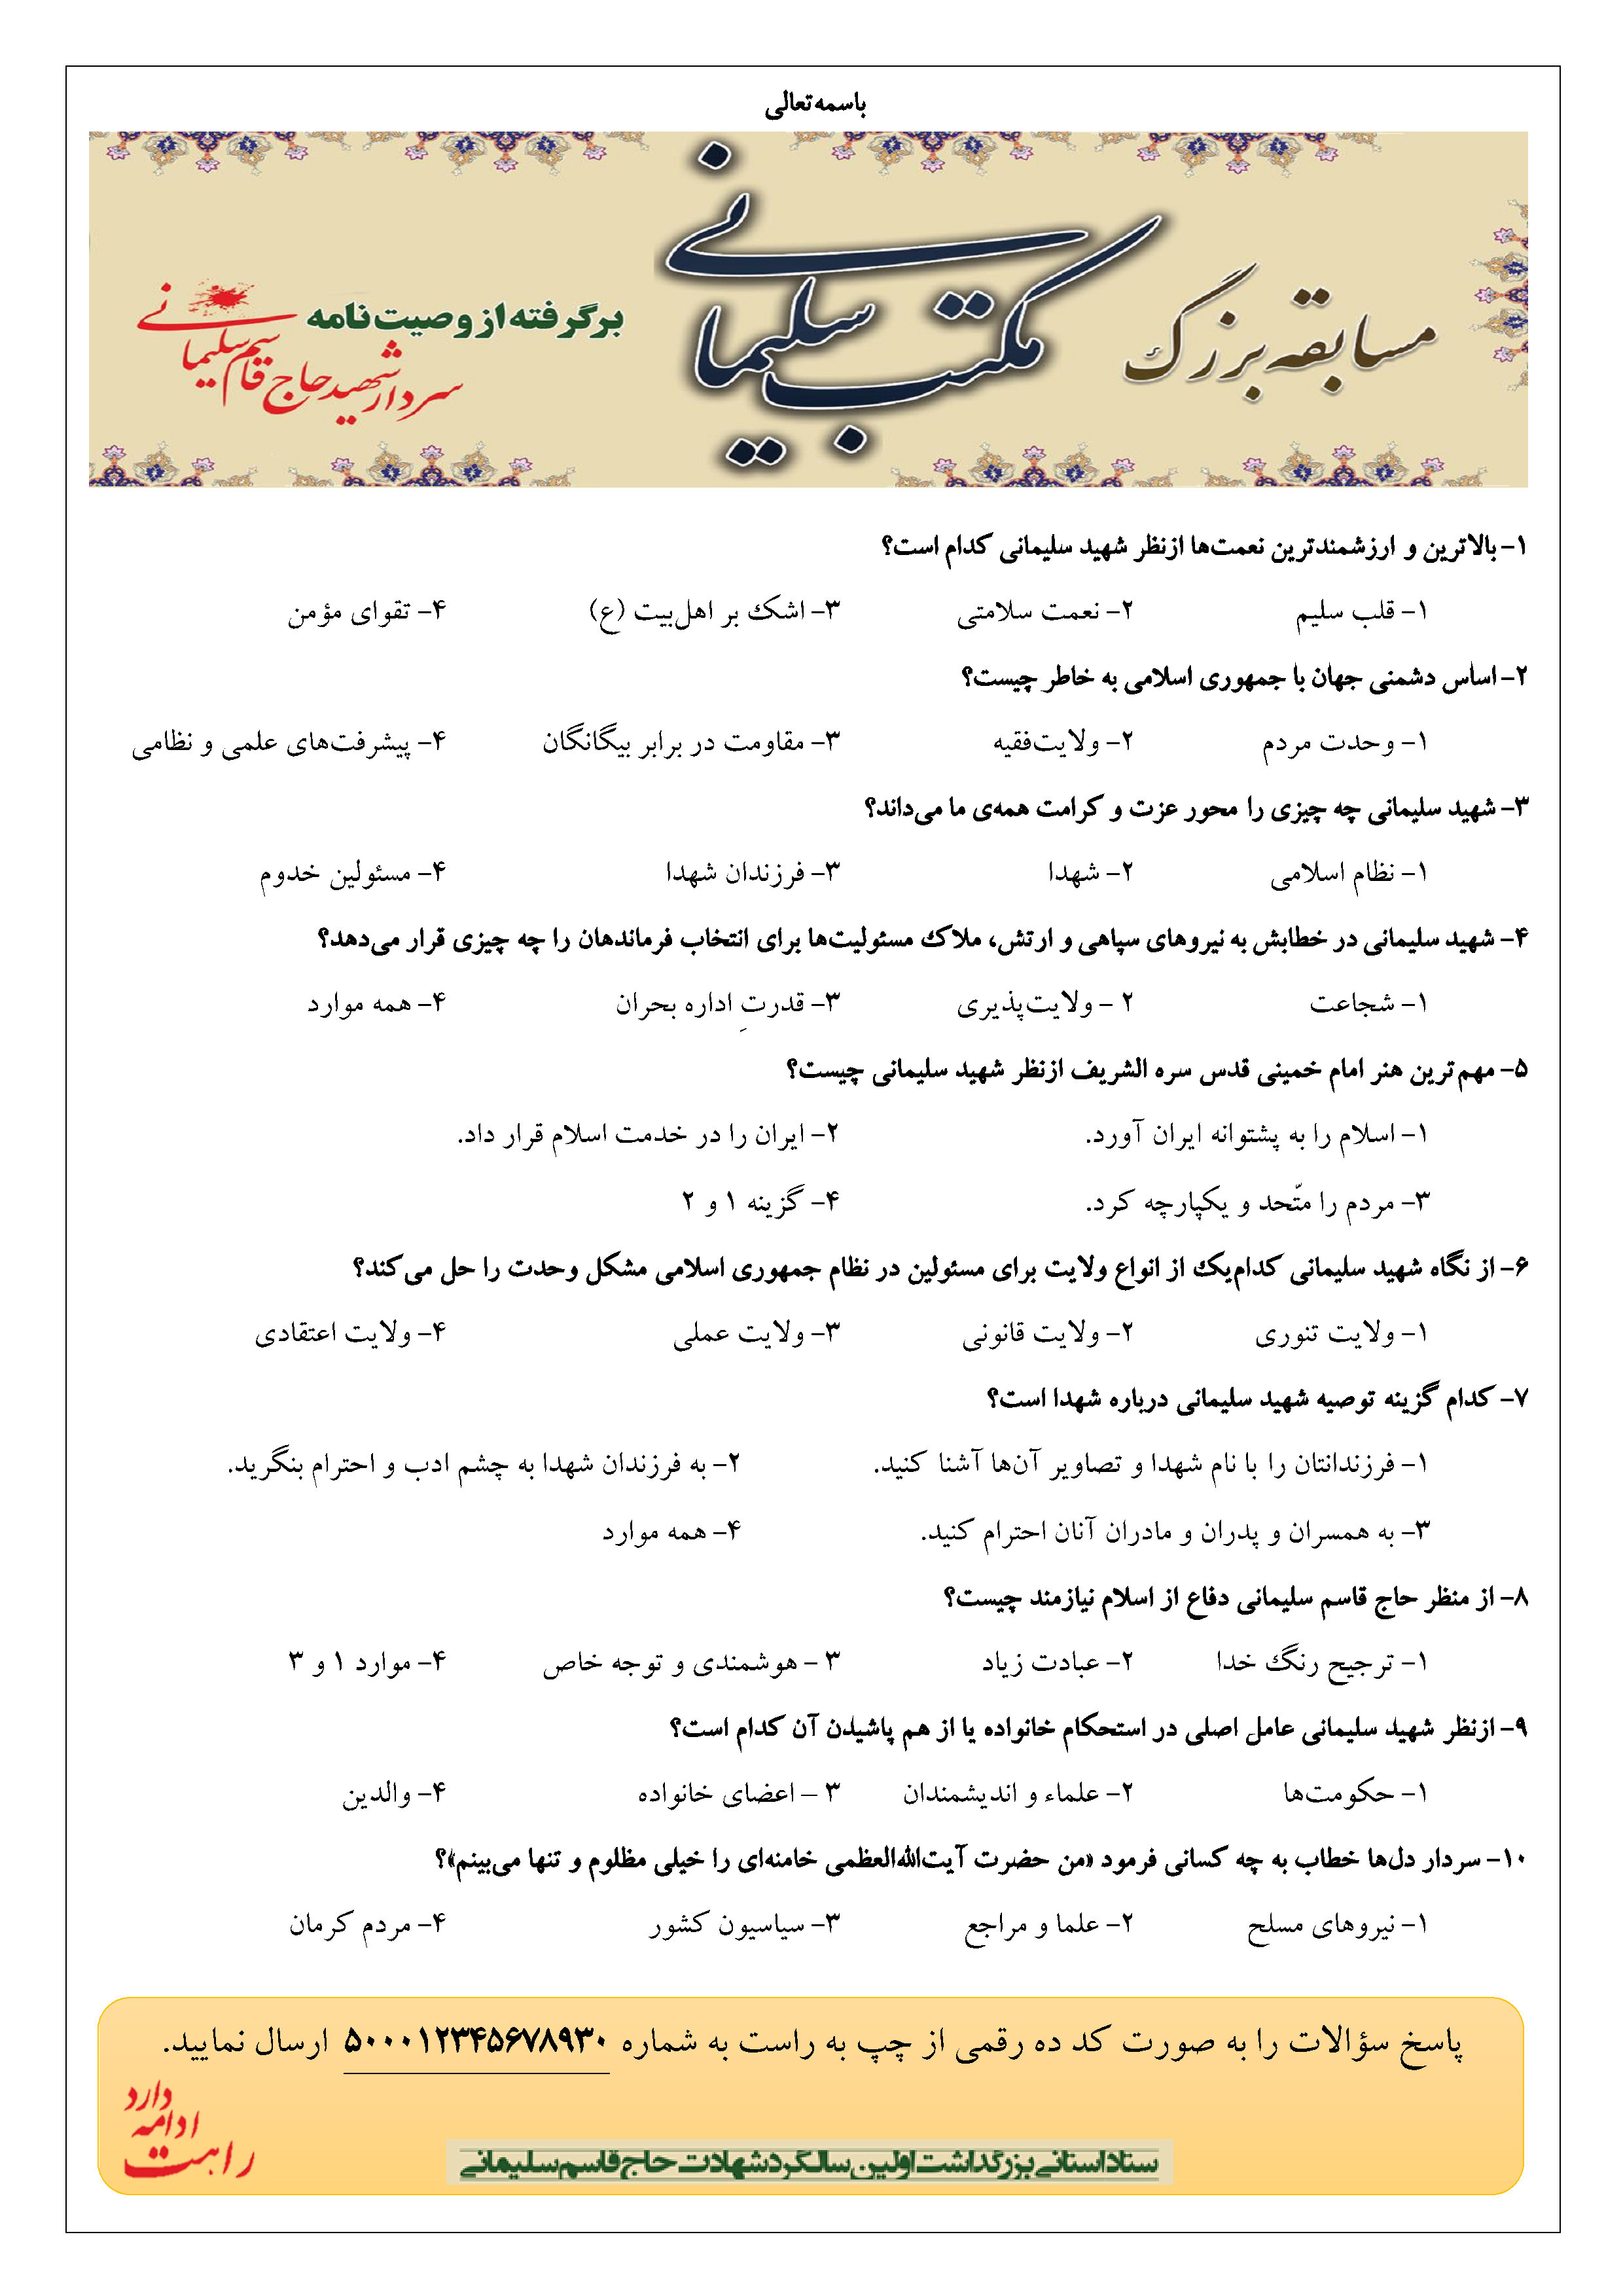 باسمه‌تعالی
مسابقه بزرگ
مکتب سلیمانی
برگرفته از وصیت‌نامه
سردار شهید حاج قاسم سلیمانی
۱- بالاترین و ارزشمندترین نعمت‌ها ازنظر شهید سلیمانی کدام است؟
۱- قلب سلیم ۲- نعمت سلامتی ۳- اشک بر اهل‌بیت (ع) ۴- تقوای مؤمن
۲- اساس دشمنی جهان با جمهوری اسلامی به خاطر چیست؟
۱- وحدت مردم ۲- ولایت‌فقیه ۳- مقاومت در برابر بیگانگان ۴- پیشرفت‌های علمی و نظامی
۳- شهید سلیمانی چه چیزی را محور عزت و کرامت همه‌ی ما می‌داند؟
۱- نظام اسلامی ۲- شهدا ۳- فرزندان شهدا ۴- مسئولین خدوم
۴- شهید سلیمانی در خطابش به نیروهای سپاهی و ارتش، ملاک مسئولیت‌ها برای انتخاب فرماندهان را چه چیزی قرار می‌دهد؟
۱- شجاعت ۲ - ولایت‌پذیری ۳- قدرتِ اداره بحران ۴- همه موارد
۵- مهم‌ترین هنر امام خمینی قدس سره الشریف ازنظر شهید سلیمانی چیست؟
۱- اسلام را به پشتوانه ایران آورد. ۲- ایران را در خدمت اسلام قرار داد.
۳- مردم را متّحد و یکپارچه کرد. ۴- گزینه ۱ و ۲
۶- از نگاه شهید سلیمانی کدام‌یک از انواع ولایت برای مسئولین در نظام جمهوری اسلامی مشکل وحدت را حل می‌کند؟
۱- ولایت تنوری ۲- ولایت قانونی ۳- ولایت عملی ۴- ولایت اعتقادی
۷- کدام گزینه توصیه شهید سلیمانی درباره شهدا است؟
۱- فرزندانتان را با نام شهدا و تصاویر آن‌ها آشنا کنید. ۲- به فرزندان شهدا به چشم ادب و احترام بنگرید.
۳- به همسران و پدران و مادران آنان احترام کنید. ۴- همه موارد
۸- از منظر حاج قاسم سلیمانی دفاع از اسلام نیازمند چیست؟
۱- ترجیح رنگ خدا ۲- عبادت زیاد ۳ - هوشمندی و توجه خاص ۴- موارد ۱ و ۳
۹- ازنظر شهید سلیمانی عامل اصلی در استحکام خانواده یا از هم پاشیدن آن کدام است؟
۱- حکومت‌ها ۲- علماء و اندیشمندان ۳ – اعضای خانواده ۴- والدین
۱۰- سردار دل‌ها خطاب به چه کسانی فرمود «من حضرت آیت‌الله‌العظمی خامنه‌ای را خیلی مظلوم و تنها می‌بینم»؟
۱- نیروهای مسلح ۲- علما و مراجع ۳- سیاسیون کشور ۴- مردم کرمان
پاسخ سؤالات را به صورت کد ده رقمی از چپ به راست به شماره ۵۰۰۰۱۲۳۴۵۶۷۸۹۳۰ ارسال نمایید.
راهت ادامه دارد
ستاد استانی بزرگداشت اولین سالگرد شهادت حاج قاسم سلیمانی